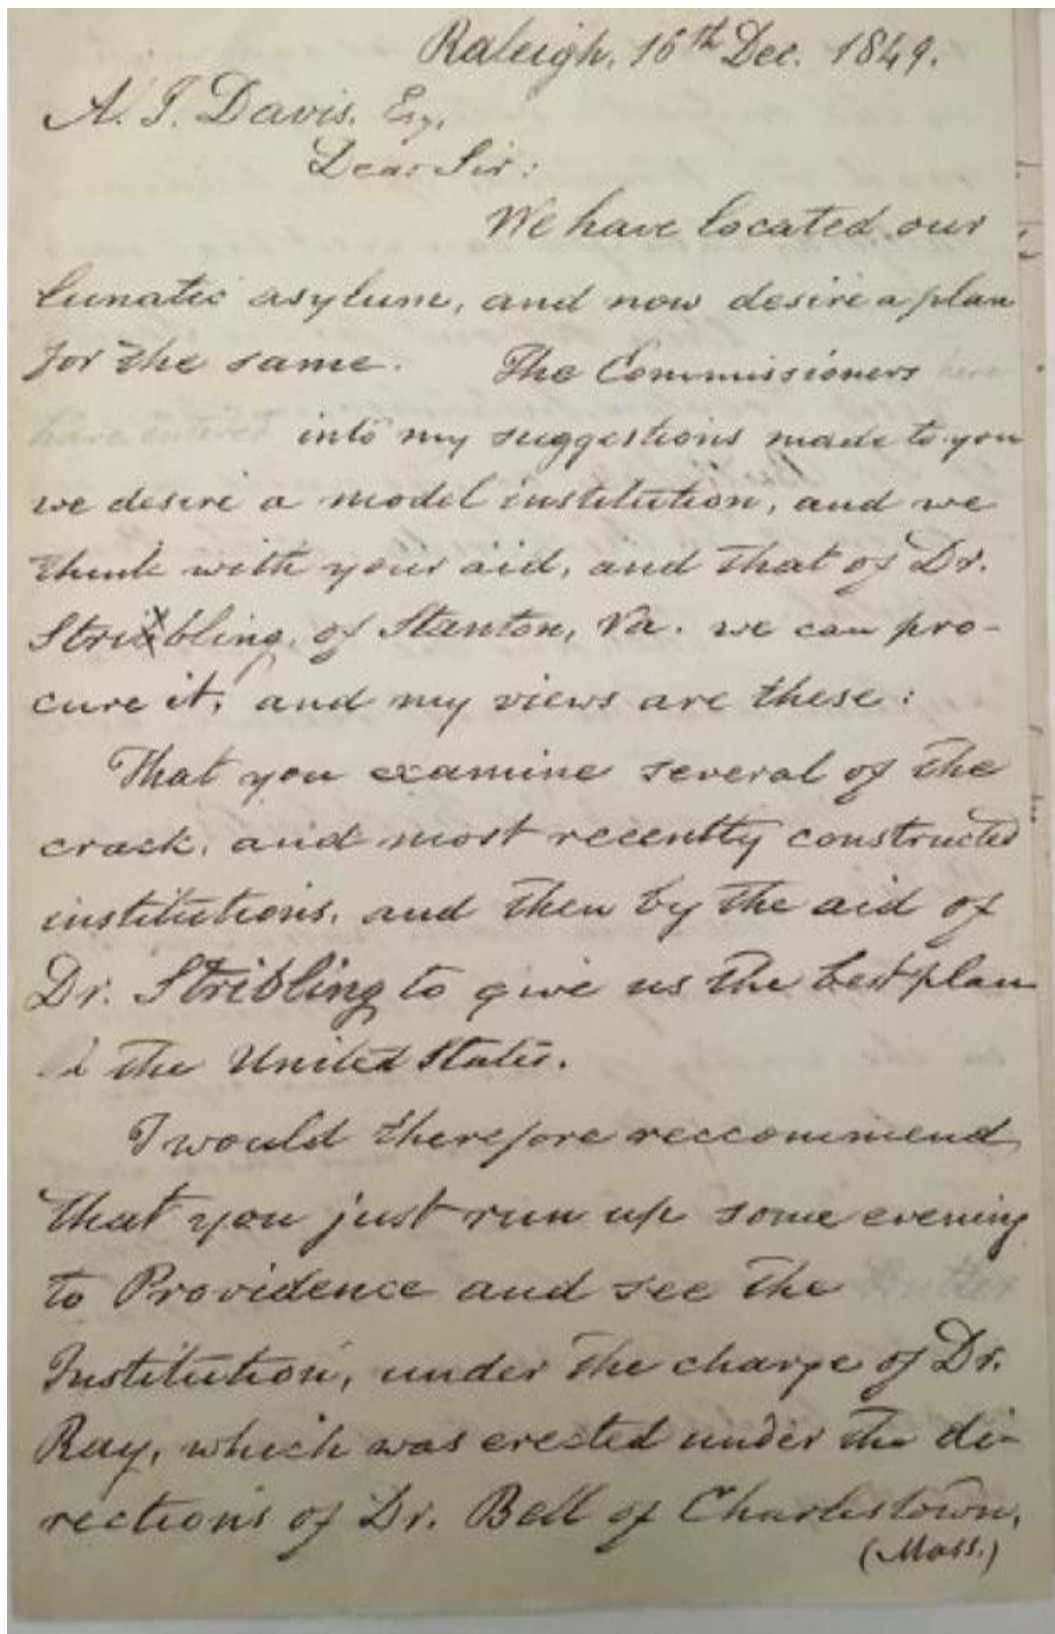 Raleigh, 16th Dec. 1849.
A. J. Davis, Esq,
Dear Sir:
We have located our
lunatic asylum, and now desire a plan
for the same. The Commissioners here
have entered into my suggestions made to you
we desire a model institution, and we
think with your aid, and that of Dr.
Stribling, of Stanton, Va. we can pro-
cure it, and my views are these:
That you examine several of the
crack, and most recently constructed
institutions, and then by the aid of
Dr. Stribling to give us the best plan
the United States.
I would therefore reccommend
that you just run up some evening
to Providence and see the Butler
Institution, under the charge of Dr.
Ray, which was erected under the di-
rections of Dr. Bell of Charlestown,
(Mass.)